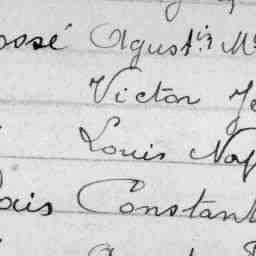 ossé Agustin M
Victor Je
Louis Nap
ais Constant